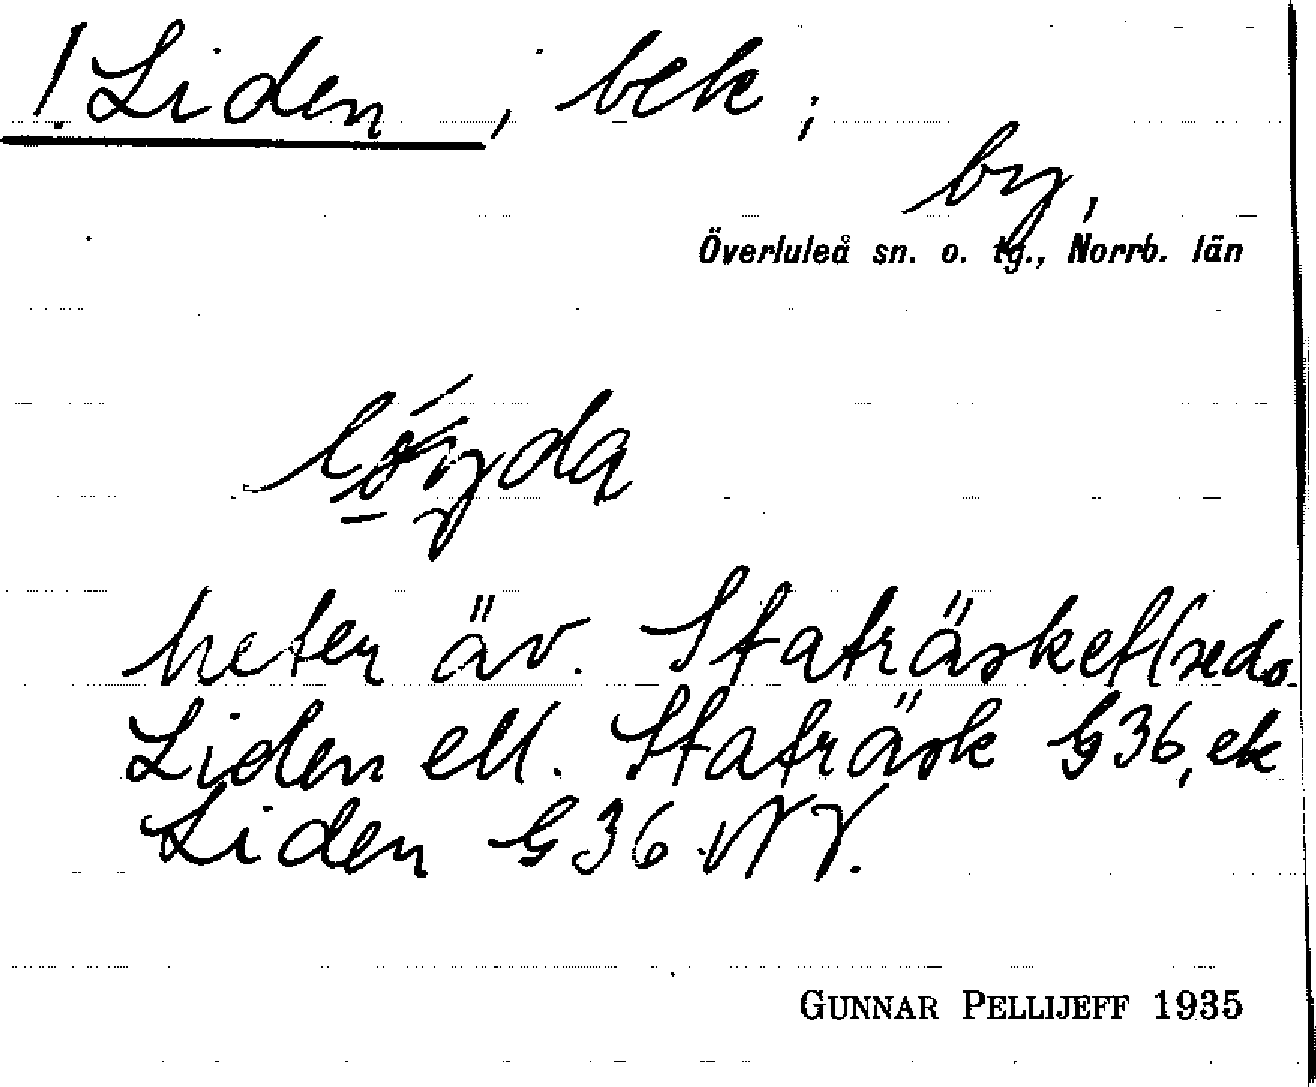 ! Liden, bek;
by,
Överluleå sn. o. tg., Norrb. län
heter äv. Stafräsket (red.
Liden ell. Stafräsk G36, ek
Liden G36 NV.
GUNNAR PELLIJEFF 1935